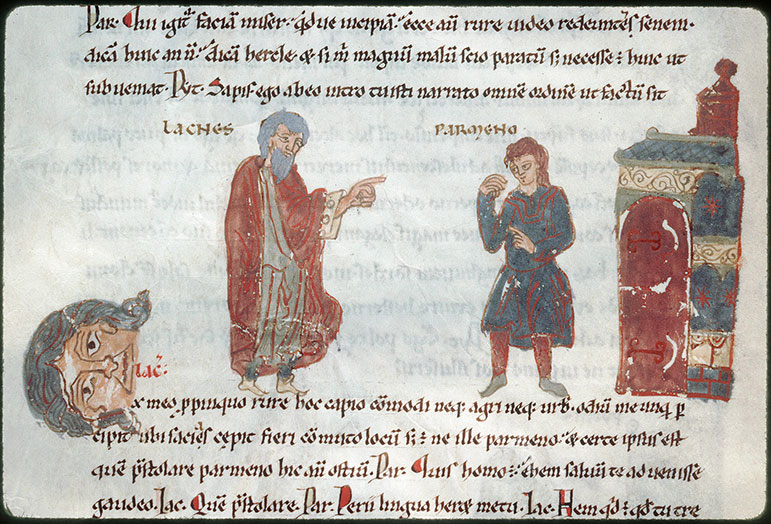 Par. Qui igit faciam miser. qđue incipiam. ecce aū rure video redeuntēs senem.
dicam huic an ñ. dicam hercle. & si m magnum malum scio paratum s; necesse ÷ huic ut
subveniat. Pyt. Sapis. ego abeo intro tu isti narrato omnem ordinem ut factum sit
LACHES PARMENO
Lac.
x meo ppinquo rure hoc capio cōmodi neq. agri neq. urb. odium me umq. p
cipit. ubi facies cepit fieri cōmuto locum s; ÷ ne ille parmeno. & certe ipsus est
quē pstolare parmeno hic an ostium. Par. Quis homo. ehem saluum te advenisse
gaudeo. Lac. Quē pstolare. Par. Perii lingua heret metu. Lac. Hem qđ ÷ qđ tu tre